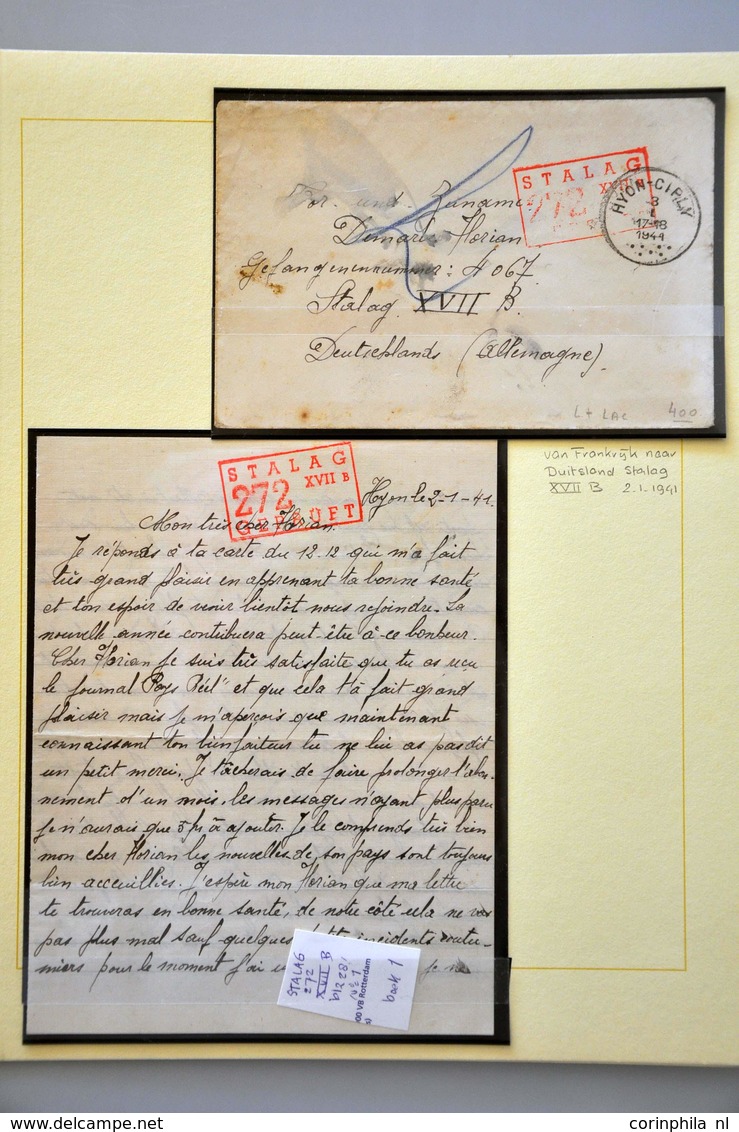 STALAG
272 XVII B
HYON-CIPLY
-3
1
17-18
1941
Vor. und. Zuname
Demarb Florian
Gefangenennummer: 4067.
Stalag XVII B.
Deutschlands (Allemagne).
L + LAC 400
van Frankrijk naar
Duitsland Stalag
XVII B 2.1.1941
STALAG
272 XVII B
GEPRÜFT
Hyon le 2-1-41.
Mon très cher Florian.
Je réponds à ta carte du 18.12 qui m'a fait
très grand plaisir en apprenant ta bonne santé
et ton espoir de venir bientôt nous rejoindre. La
nouvelle année contribuera peut-être à ce bonheur.
Cher Florian je suis très satisfaite que tu as reçu
le journal "Pays Réel" et que cela t'a fait grand
plaisir mais je m'aperçois que maintenant
connaissant ton bienfaiteur tu ne lui as pas dit
un petit merci. Je tâcherais de faire prolonger l'abon-
nement d'un mois, les messages n'ayant plus paru
je n'aurais que 5 frs à ajouter. Je le comprends très bien
mon cher Florian les nouvelles de son pays sont toujours
bien acceuillies. J'espère mon Florian que ma lettre
te trouveras en bonne santé, de notre côté cela ne va
pas plus mal sauf quelques incidents coutu-
miers pour le moment j'ai je ne
STALAG
272
XVII B
b12281
No 1
00 VB Rotterdam
book 1
corinphila nl